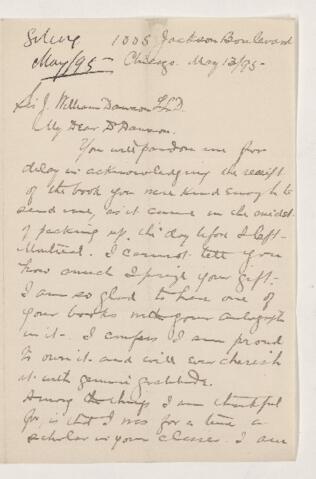 May/95 -
1008 Jackson Boulevard
Chicago. May 13/95 -
Sir J. William Dawson LLD.
My Dear Dr Dawson.
You will pardon me for
delay in acknowledging the receipt
of the book you were kind enough to
send me, as it came in the midst
of packing up, the day before I left
Montreal. I cannot tell you
how much I prize your gift.
I am so glad to have one of
your books with your autograph
in it - I confess I am proud
to own it and will ever cherish
it with genuine gratitude.
Among the things I am thankful
for, is that I was for a time a
scholar in your classes. I am